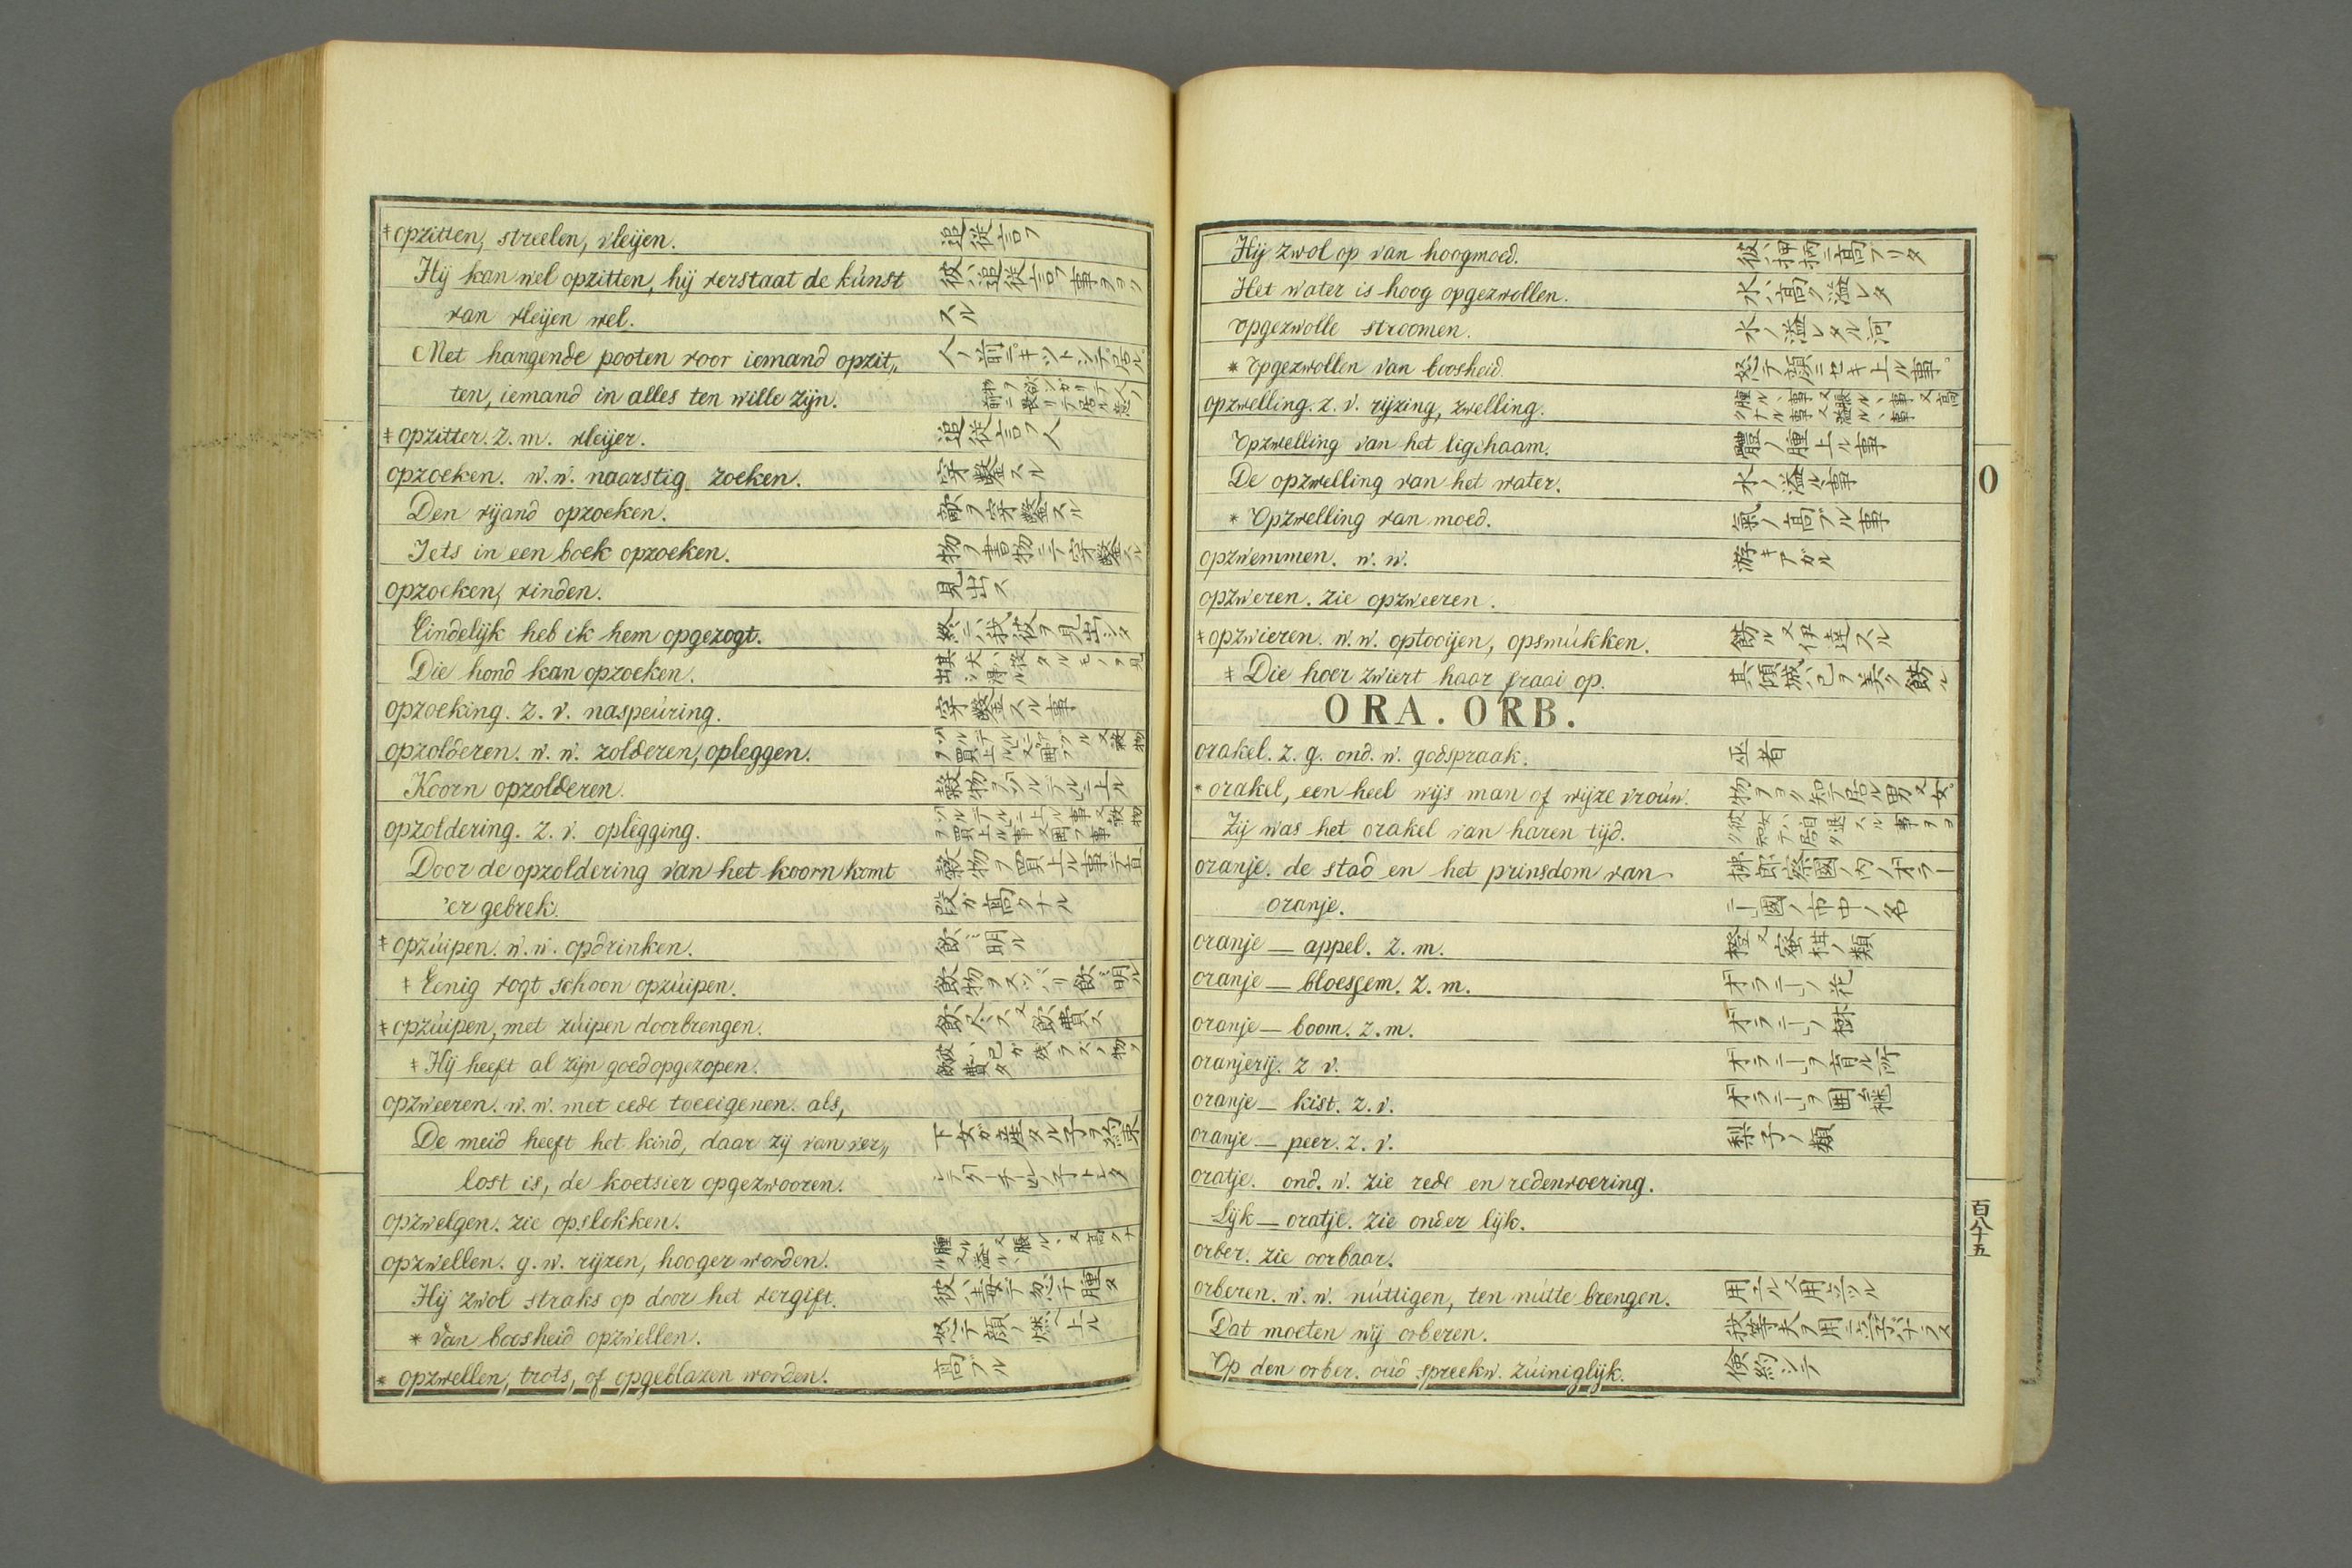 ‡ opzitten, streelen, vleijen. 追從言フ
Hij kan wel opzitten, hij verstaat de kúnst 彼ハ追從言フ事ヲヨク
van vleijen wel. スル
Met hangende pooten voor iemand opzit„ 人ノ前ニキツトシテ居ル
ten, iemand in alles ten wille zijn.
‡ opzitter. z. m. vleijer. 追從言フ人
opzoeken. w. w. naarstig zoeken. 穿鑿スル
Den vijand opzoeken. 敵ヲ穿鑿スル
Iets in een boek opzoeken. 物ヲ書物ニテ穿鑿スル
opzoeken, vinden. 見出ス
Eindelijk heb ik hem opgezogt. 終ニ我彼ヲ見出シタ
Die hond kan opzoeken.
opzoeking. z. v. naspeúring. 穿鑿スル事
opzolderen. w. w. zolderen, opleggen.
Koorn opzolderen. 穀物ヲソルデルニ上ル
opzoldering. z. v. oplegging.
Door de opzoldering van het koorn komt 穀物ヲ買上ル事デ直
'er gebrek. 段ガ高クナル
‡ opzúipen. w. w. opdrinken. 飲ミ明ル
‡ Eenig vogt schoon opzúipen. 飲物ヲスツパリ飲ミ明ル
‡ opzúipen, met zúipen doorbrengen. 飲尽ス又飲費ス
‡ Hij heeft al zijn goed opgezopen.
opzweeren. w. w. met eede toeeigenen. als,
De meid heeft het kind, daar zij van ver„ 下女ガ産タル子ヲ約束
lost is, de koetsier opgezwooren.
opzwelgen. zie opslokken.
opzwellen. g. w. rijzen, hooger worden.
Hij zwol straks op door het vergift. 彼ハ毒デ忽チ腫タ
* Van boosheid opzwellen. 怒テ顔ノ燃ヘ上ル
* opzwellen, trots, of opgeblazen worden. 高ブル
Hij zwol op van hoogmoed.
Het water is hoog opgezwollen. 水ハ高ク溢レタ
opgezwolle stroomen. 水ノ溢レタル河
* Opgezwollen van boosheid. 怒テ顔ニセキ上ル事
opzwelling. z. v. rijzing, zwelling.
Opzwelling van het ligchaam. 體ノ腫上ル事
De opzwelling van het water. 水ノ溢ル事
* Opzwelling van moed. 氣ノ高ブル事
opzwemmen. w. w. 游キアガル
opzweren. zie opzweeren.
‡ opzwieren. w. w. optooijen, opsmúkken. 餝ル又伊達スル
‡ Die hoer zwiert haar fraai op. 其傾城ハ己ヲ美ク餝ル
ORA. ORB.
orakel. z. g. ond. w. godspraak. 巫者
* orakel, een heel wijs man of wijze vroúw. 物ヲヨク知テ居ル男又女
Zij was het orakel van haren tijd.
oranje. de stad en het prinsdom van 拂郎察國ノ内ノヲラー
oranje. ニー國ノ市中ノ名
oranje — appel. z. m. 橙又蜜柑ノ類
oranje — bloessem. z. m. ヲラニーノ花
oranje — boom. z. m. ヲラニーノ樹
oranjerij. z v. ヲラニーヲ育ル所
oranje — kist. z. v.
oranje — peer. z. v. 梨子ノ類
oratje. ond. w. zie rede en redenvoering.
Lijk — oratje. zie onder lijk.
orber. zie oorbaar.
orberen. w. w. núttigen, ten nútte brengen. 用ユル又用立ツル
Dat moeten wij orberen.
Op den orber. oúd spreekw. zúiniglijk. 倹約シテ
O
百八十五